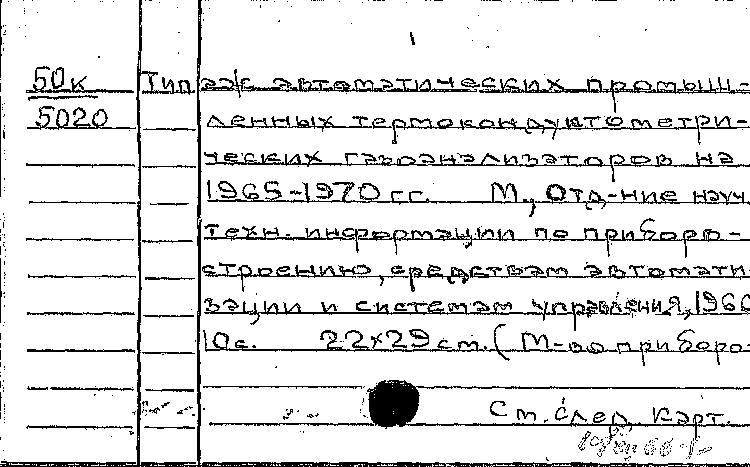 50к Типаж автоматических промыш-
5020 ленных термокондуктометри-
ческих газоанализаторов на
1965-1970 гг. М., Отд-ние науч.
техн. информации по приборо-
строению, средствам автомати
зации и системам управления, 1966
10с. 22х29 см. (М-во приборо-
См. след. карт.